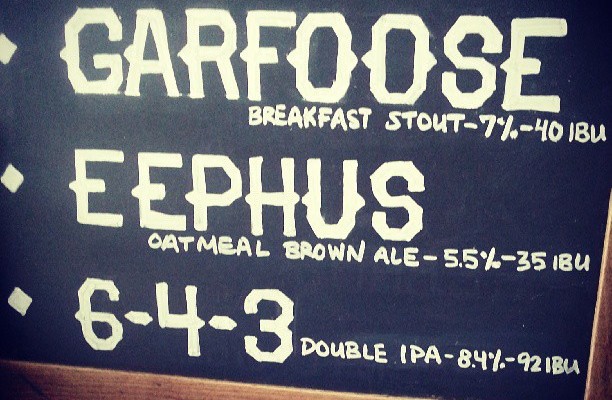 GARFOOSE
BREAKFAST STOUT-7%-40 IBU
EEPHUS
OATMEAL BROWN ALE-5.5%-35 IBU
6-4-3
DOUBLE IPA-8.4%-92 IBU